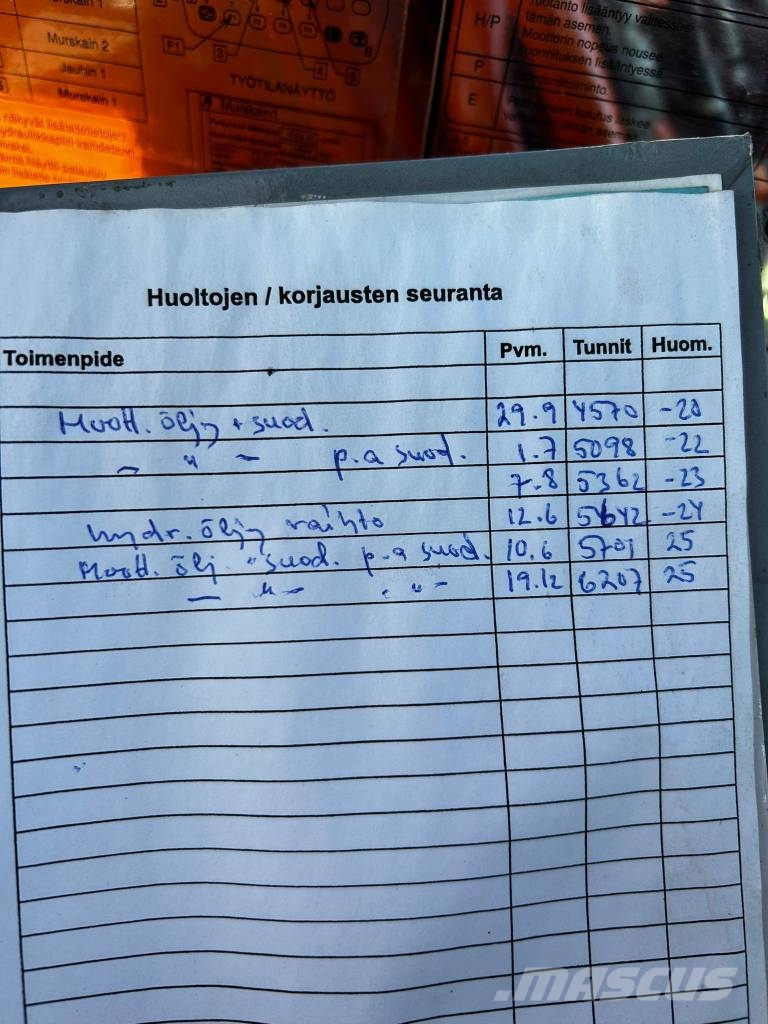 Murskain 1
Murskain 2
Jauhin 1
Murskain 1
F1
3
4
5
TYÖTILANÄYTTÖ
Murskaind
H/P
Tuotanto lisääntyy valitessesi
tämän aseman.
Moottorin nopeus nousee
kuormituksen lisääntyessä
P
E
kulutus laskee
aseman
Huoltojen / korjausten seuranta
Toimenpide Pvm. Tunnit Huom.
Moott. öljy + suod. 29.9 4570 -20
— " — p.a suod. 1.7 5098 -22
7.8 5362 -23
hydr. öljy vaihto 12.6 5642 -24
Moott. ölj. "suod. p-a suod. 10.6 5701 25
— "— "– 19.12 6207 25
.MASCUS